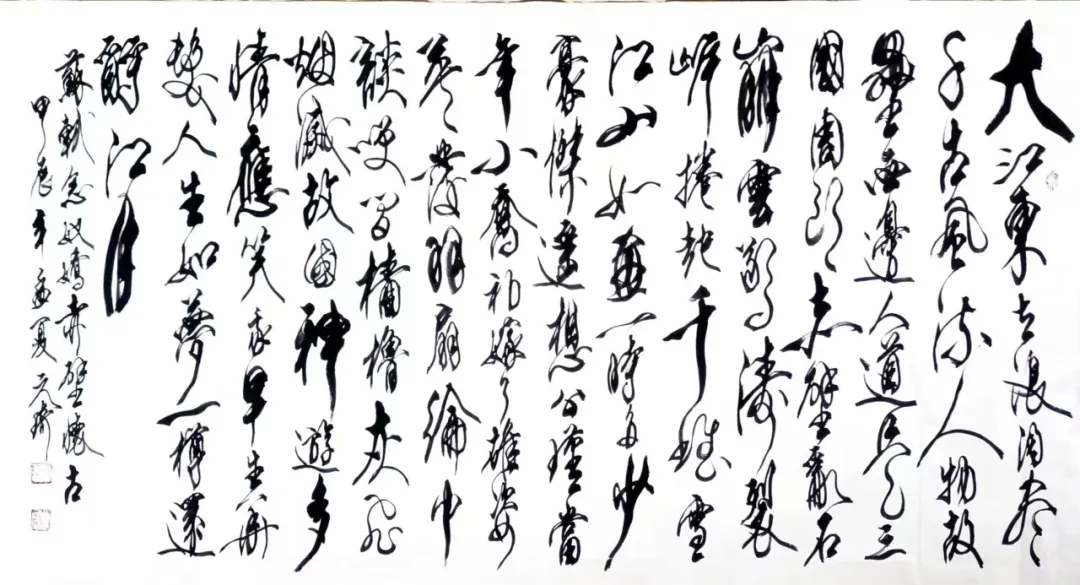 大江東去浪淘盡
千古風流人物故
壘西邊人道是三
國周郎赤壁亂石
崩雲驚濤裂
岸捲起千堆雪
江山如畫一時多少
豪傑遙想公瑾當
年小喬初嫁了雄姿
英發羽扇綸巾
談笑間檣櫓灰飛
烟滅故國神遊多
情應笑我早生華
髮人生如夢一樽還
酹江月
蘇軾念奴嬌赤壁懷古
甲辰年孟夏元